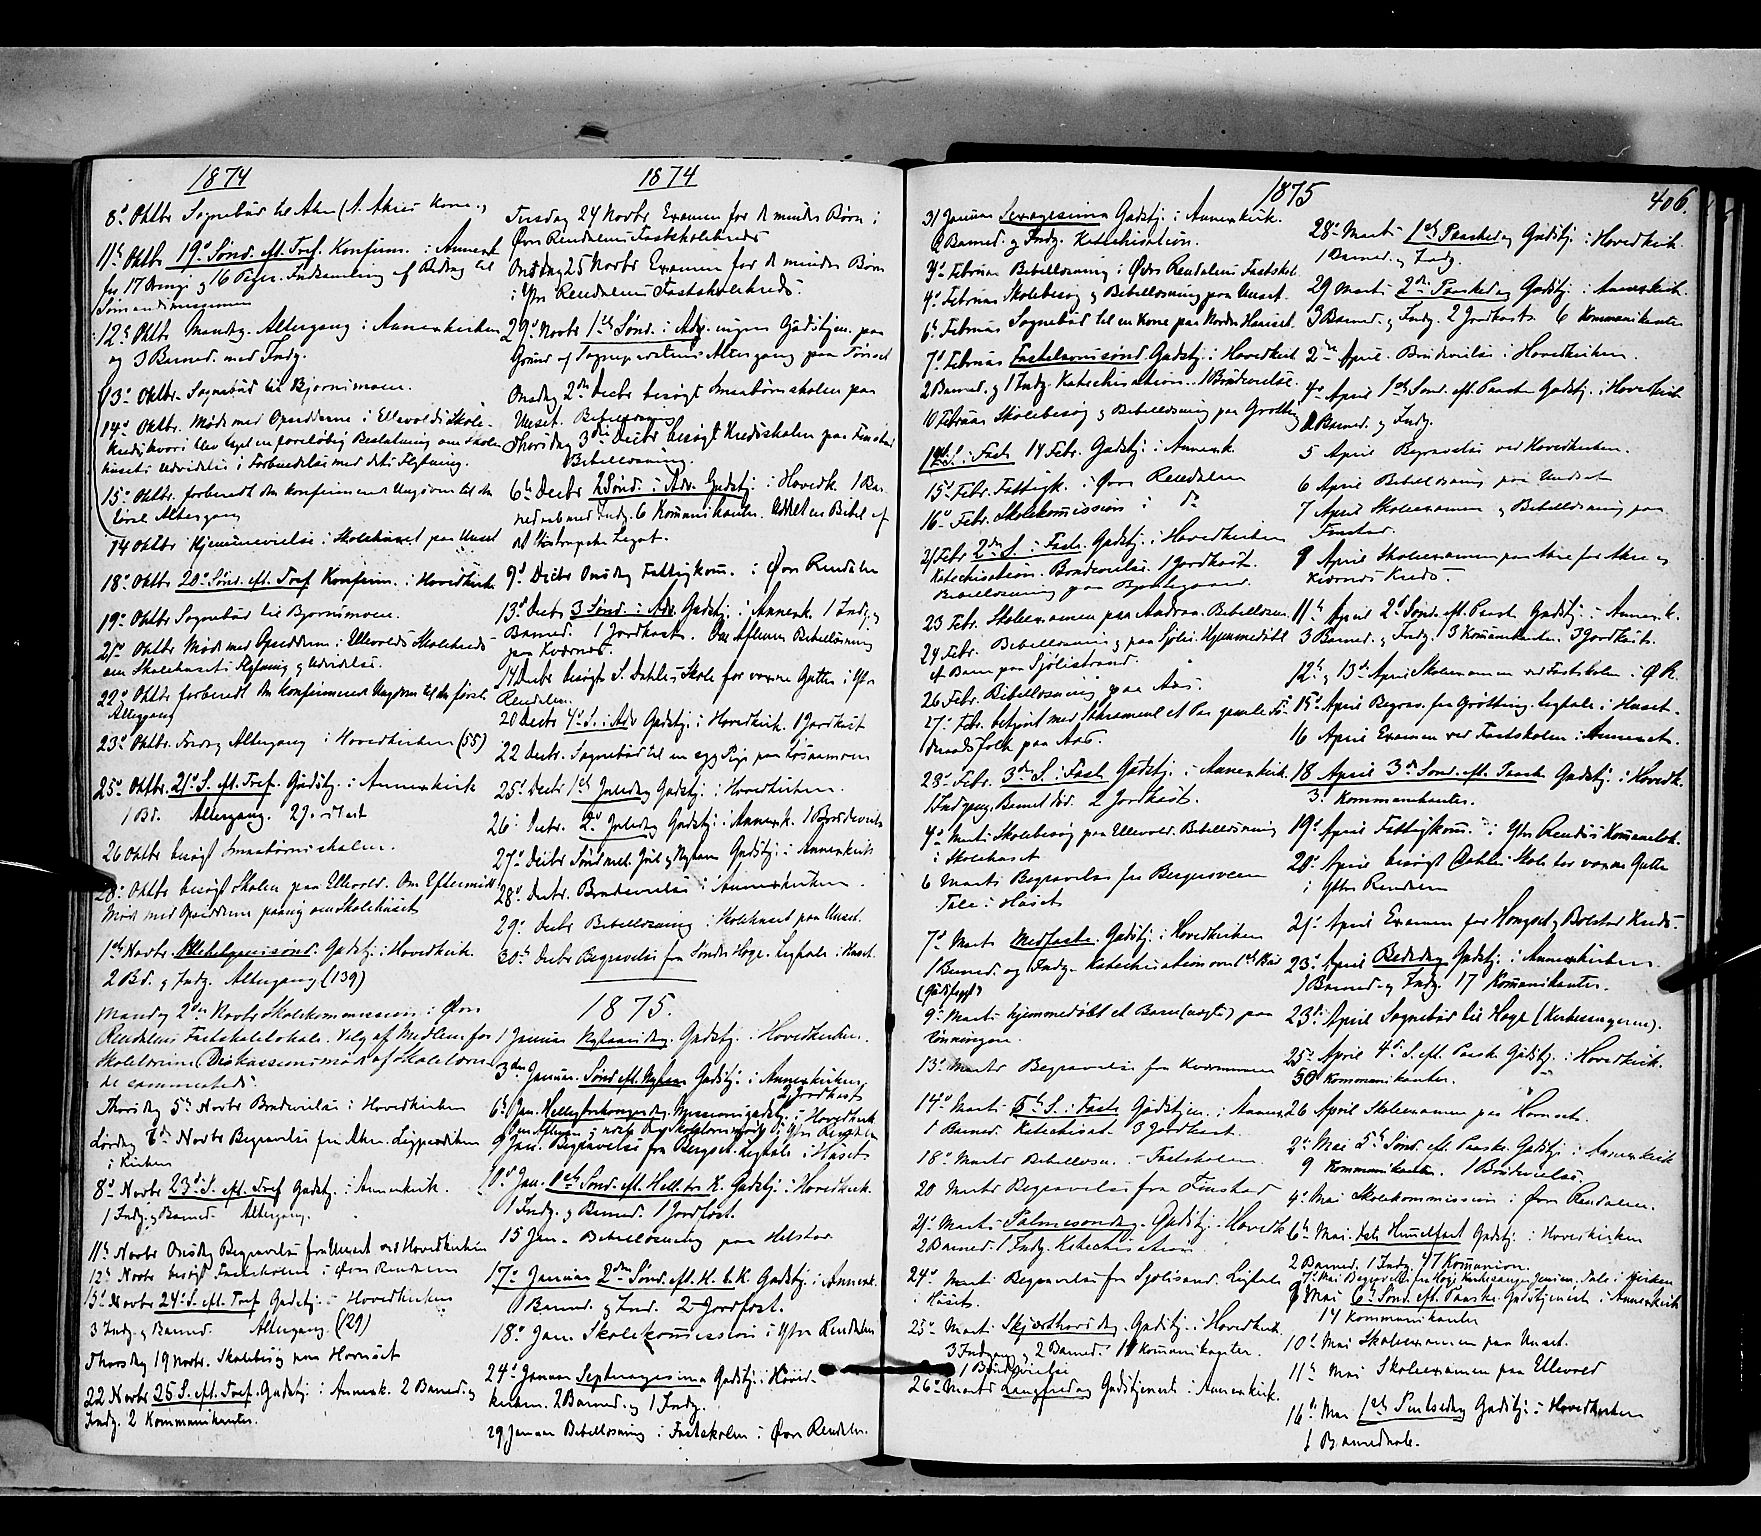 1874
8de Oktbr Sognebud til Aken (A. Akres Kone.)
11te Oktbr 19de Sønd. eft. Tref. Konfirm. i Annexk
for 17 Drenge og 16 Piger. Indsamling af Bidrag til
Sømandsmissionen
12te Oktbr Mandag. Altergang i Annexkirken
og 3 Barned. med Indg.
13de Oktbr. Sognebud til Bjørnsmoen.
14de Oktbr. Møde med Opsidderne i Ellevolds Skole-
kreds hvori blev tagt en foreløbig Beslutning om Skole
husets Udvidelse i Forbindelse med dets Flytning.
15de Oktbr. forberedt den konfirmerede Ungdom til den
første Altergang
14 Oktbr Hjemmevielse i Skolehuset paa Unset
18de Oktbr 20de Sønd. eft. Tref Konfirm. i Hovedkirke
19de Oktbr Sognebud til Bjørnsmoen.
21de Oktbr Møde med Opsidderne i Ellevolds Skolekreds
om Skolehusets Flytning og Udvidelse.
22de Oktbr forberedt den konfirmerede Ungdom til den første
Altergang
23de Oktbr. Fredag Altergang i Hovedkirken (55)
25de Oktbr. 21de S. eft. Tref. Gudstj. i Annexkirk
1 Bd. Altergang.
26 Oktbr besøgt Smaabørnsskolen.
28de Oktbr besøgt Skolen paa Ellevold. Om Efterm
Møde med Opsidderne paany om Skolehuset
1ste Novbr. Allehelgenssønd. Gudstj. i Hovedkirk.
2 Bd. og Indg. Altergang (139)
Mandag 2den Novbr Skolekommission i Øvre
Rendalens Fastskolelokale. Valg af Medlem for
Skolelærerne. Diskussionsmøde af Skolelærerne
Thorsdag 5te Novbr Brudevielse i Hovedkirken
Lørdag Novbr Begravelse fra Aken. Ligprædiken
i Kirken
8de Novbr 23de S. eft. Tref Gudstj. i Annexkirk.
1 Indg. og Barned. Altergang.
11te Novbr Onsdag Begravelse fra Unset ved Hovedkirken
12te Novbr besøgt Fastskolen i Øvre Rendalen
15de Novbr 24de S. eft. Tref Gudstj. i Hovedkirken
3 Indg. og Barned. Altergang (29)
Thorsdag 19 Novbr. Skolebesøg paa Hornset
22 Novbr 25 S. eft. Tref. Gudstj. i Annexk. 2 Barned. og
Indg. 2 Kommunikanter.
1874
Tirsdag 24 Novbr Examen for de mindre Børn i
Øvre Rendalens Fastskolekreds
Onsdag 25 Novbr Examen for de mindre Børn
i Ytre Rendalens Fastskolekreds
29de Novbr 1ste Sønd. i Adv. ingen Gudstjen. paa
Grund af Sognepræstens Altergang paa Tønset
Onsdag 2den Decbr besøgt Smaabørnsskolen paa
Unset. Bibellæsning
Thorsdag 3die Decbr besøgt Kredsskolen paa Finstad
Bibellæsning.
6te Decbr 2 Sønd. i Adv. Gudstj. i Hovedk. 1 Bar
nedaab med Indg. 6 Kommunikanter. Uddelt en Bibel af
det Legat.
9de Decbr Onsdag Fattigkom. i Øvre Rendalen
13de Decbr 3 Sønd. i Adv. Gudstj. i Annexk. 1 Indg. og
Barned. 1 Jordkast. Om Aftenen Bibellæsning
paa Kværnes.
14 Decbr besøgt S. Dahles Skole for voxne Gutter i Ytre
Rendalen.
20 Decbr 4de S. i Adv Gudstj. i Hovedkirk. 1 Jordkast
22 Decbr. Sognebud til en syg Pige paa
25de Decbr 1ste Juledag Gudstj. i Hovedkirken.
26de Decbr. 2den Juledag Gudstj. i Annexk. 1 Brudevielse
27de Decbr Sønd mel. Jul og Nytaar Gudstj. i Annexkirk
28de Decbr. Brudevielse i Annexkirken.
29de Decbr Bibellæsning i Skolehuset paa Unset.
30te Decbr Begravelse fra Søndre Hoge. Ligtale i Huset.
1875.
1 Januar Nytaarsdag Gudstj. i Hovedkirken.
3die Januar. Sønd. eft. Nytaar Gudstj. i Annexkirken
2 Jordkast
6te Jan. Helligtrekongersdag. Missionsgudstj. i Hovedkirk
9 Jan. Begravelse fra Bergset. Ligtale i Huset
10de Jan. 1ste Sønd. eft. Hell. tre K. Gudstj. i Hovedkirk.
1 Indg. og Barned. 1 Jordkast.
15 Jan. Bibellæsning paa Helstad
17de Januar 2den Sønd. eft. H. t. K. Gudstj. i Annexk.
1 Barned. og Indg. 2 Jordkast.
18de Jan. Skolekommission i Ytre Rendalen
24de Januar Septuagesima Gudstj. i Hoved-
kirken. 2 Barned. og 1 Indg.
29 Januar Bibellæsning i Fastskolen i Øvre Rendalen.
1875
406.
31 Januar Sexagesima Gudstj. i Annexkirk.
Barned. og Indg. Katechisation.
3die Februar Bibellæsning i Øvre Rendalens Fastskole
4de Februar Skolebesøg og Bibellæsning paa Unset.
6te Februar Sognebud til en Kone paa Nordre Hanset.
7de Februar Fastelavnssønd. Gudstj. i Hovedkirk
2 Barned. og 1 Indg. Katechisation. 1 Brudevielse.
10 Februar Skolebesøg og Bibellæsning paa Grøtting
1ste S. i Faste 14 Febr. Gudstj. i Annexk.
15de Febr. Fattigk. i Øvre Rendalen
16de Febr. Skolekommission i do
21 Febr 2den S. i Faste. Gudstj. i Hovedkirken
Katechisation. Brudevielse. 1 Jordkast.
Bibellæsning paa
23 Febr. Skoleexamen paa Aadraa. Bibellæsn.
24 Febr. Bibellæsning paa Sjøli. Hjemmedøbt
et Barn paa Sjølistrand.
26 Febr. Bibellæsning paa Aas.
27de Febr. betjent med Sakrament et Par gamle Fø-
deraadsfolk paa Aas.
28de Febr. 3die S. i Faste Gudstj. i Annexkirk.
1 Indgang. Barnet død. 2 Jordkast.
4de Marts Skolebesøg paa Ellevold. Bibellæsning
i Skolehuset
6 Marts Begravelse fra Bergsveen
Tale i Huset
7de Marts Midfaste. Gudstj. i Hovedkirken
1 Barned. og Indg. Katechisation over 1ste Bud
9de Marts hjemmedøbt et Barn (uægte) paa
Rønningen.
13de Marts Begravelse fra Kværnmoen
14de Marts 5te S. i Faste Gudstjen. i Annexk
1 Barned. Katechisat. 3 Jordkast.
18de Marts Bibellæsn. i Fastskolen
20 Marts Begravelse fra Finstad
21de Marts Palmesøndag. Gudstj. i Hovedk
2 Barned. 1 Indg. Katechisation
24de Marts Begravelse fra Sjølisand. Ligtale
i Huset.
25de Marts Skjærthorsdag Gudstj. i Hovedkirk.
3 Indgang 2 Barned. 11 Kommunikanter.
1 Brudevielse
26de Marts Langfredag Gudstjeneste i Annexkirk.
28de Marts 1ste Paaskedag Gudstj. i Hovedkirk.
1 Barned. og Indg.
29 Marts 2den Paaskedag Gudstj. i Annexkirk.
3 Barned. og Indg. 2 Jordkast. 6 Kommunikanter
2den April. Brudevielse i Hovedkirken.
4de April 1ste Sønd. eft. Paaske Gudstj. i Hovedkirk
Barned. og Indg.
5 April Begravelse ved Hovedkirken.
6 April Bibellæsning paa Undset
7 April Skoleexamen og Bibellæsning paa
Finstad.
8 April Skoleexamen paa Akre for Akre og
Kværnes Kreds.
11te April 2den Sønd. eft. Paaske Gudstj. i Annexk.
3 Barned. og Indg. 3 Kommunikanter. 3 Jordkast.
12te og 13de April Skoleexamen ved Fastskolen i Ø. R.
15de April Begrav. fra Grøtting. Ligtale i Huset.
16 April Examen ved Fastskolen i Annexet.
18 April 3die Sønd. eft. Paaske Gudstj. i Hovedk.
3 Kommunikanter.
19de April Fattigkom. i Ytre Rendals Kommunelok.
20de April besøgt Dahls Skole for voxne Gutter
i Ytre Rendalen
21de April Examen for Hangset og Bolstad Kreds
23de April Bededag Gudstj. i Annexkirken.
1 Barned. og Indg. 17 Kommunikanter.
23de April Sognebud til Høye (Kirkesangeren).
25de April 4de S. eft. Paaske Gudstj. i Hovedkirk.
30 Kommunikanter.
26 April Skoleexamen paa Hornset.
2den Mai 5te Sønd. eft Paaske Gudstj. i Annexkirk
9 Kommunikanter. 1 Brudevielse.
4de Mai Skolekommission i Øvre Rendalen.
6te Mai. Kr. Himmelfart Gudstj. i Hovedkirken
2 Barned. 1 Indg. 47 Kommunion.
7de Mai Begravelse fra Høye Kirkesanger Jensen. Tale i Kirken
9de Mai 6te Sønd. eft. Paaske. Gudstjeneste i Annexkirk
14 Kommunikanter
10de Mai Skoleexamen paa Unset.
11te Mai Skoleexamen paa Ellevold
16de Mai 1ste Pintsedag Gudstj. i Hovedkirken
1 Barnedaab.